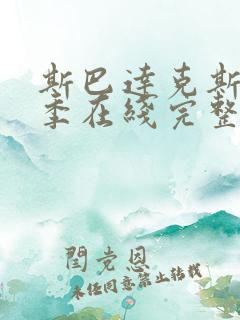 斯巴达克斯
季在线完整
闫党恩
未经同意禁止转载